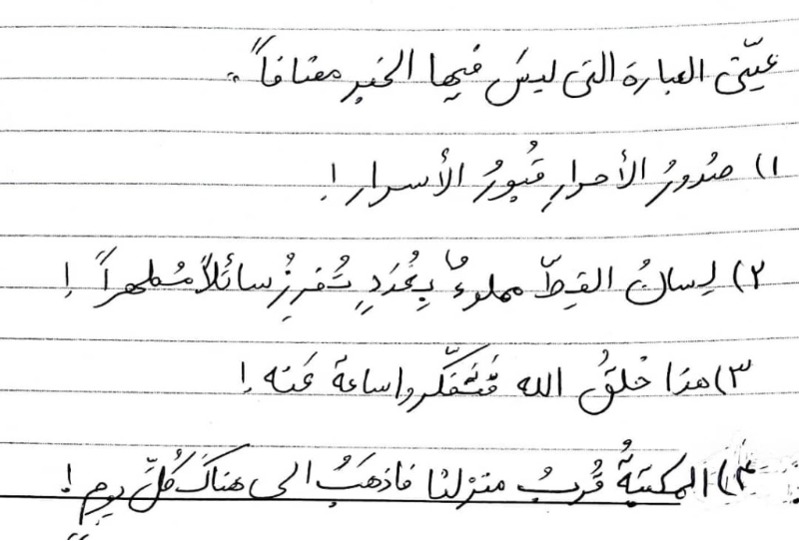 عيّني العبارة التي ليسَ فيها الخبر مضافاً..
١) صُدورُ الأحرارِ قُبورُ الأسرار!
٢) لِسانُ القِطّ مملوءٌ بِغُدَدٍ تُفرِزُ سائلاً مُطهراً!
٣) هذا خلقُ الله فَتَفَكّروا ساعة عَنه!
٤) المكتبةُ قُربُ منزلنا فاذهَبُ الى هناكَ كُلَّ يومٍ!